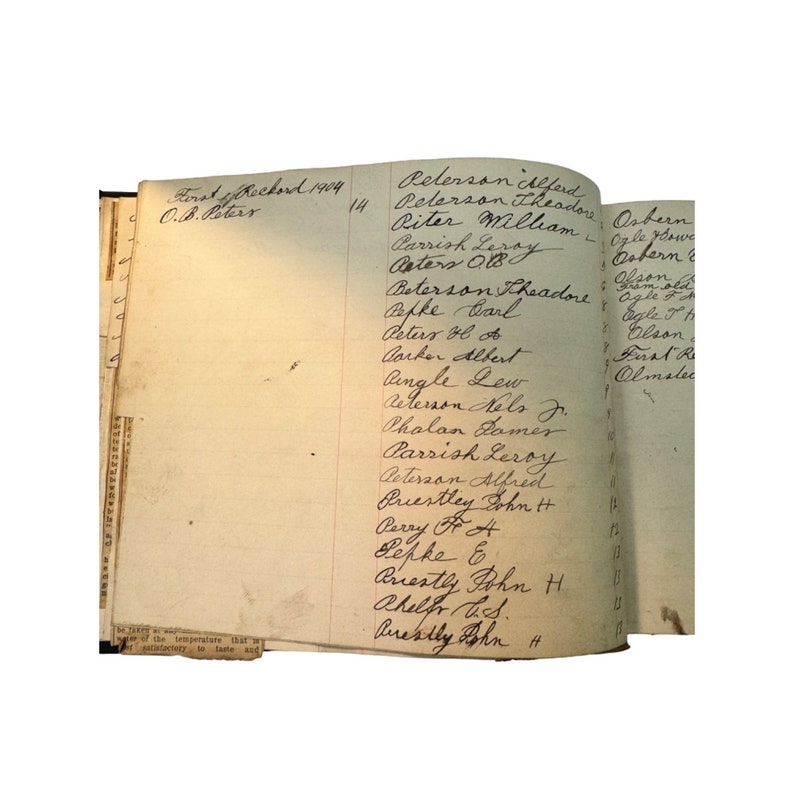 First of Reckord 1904
O. B. Peters 14
Peterson Alferd
Peterson Theadore
Piter William
Parrish Leroy
Peters O. B
Peterson Theadore
Pepke Carl
Peters H A
Parker Albert
Pingle Lew
Peterson Nels Jr.
Phalan James
Parrish Leroy
Peterson Alfred
Priestley John H
Perry F H
Pepke E
Priestly John H
Phelps S.
Priestly John H
Osbern
Ogle
Osbern
Olson
From old
Ogle F
Ogle T H
Olson
First Re
Olmsted
be taken at any
water of the temperature that is
most satisfactory to taste and